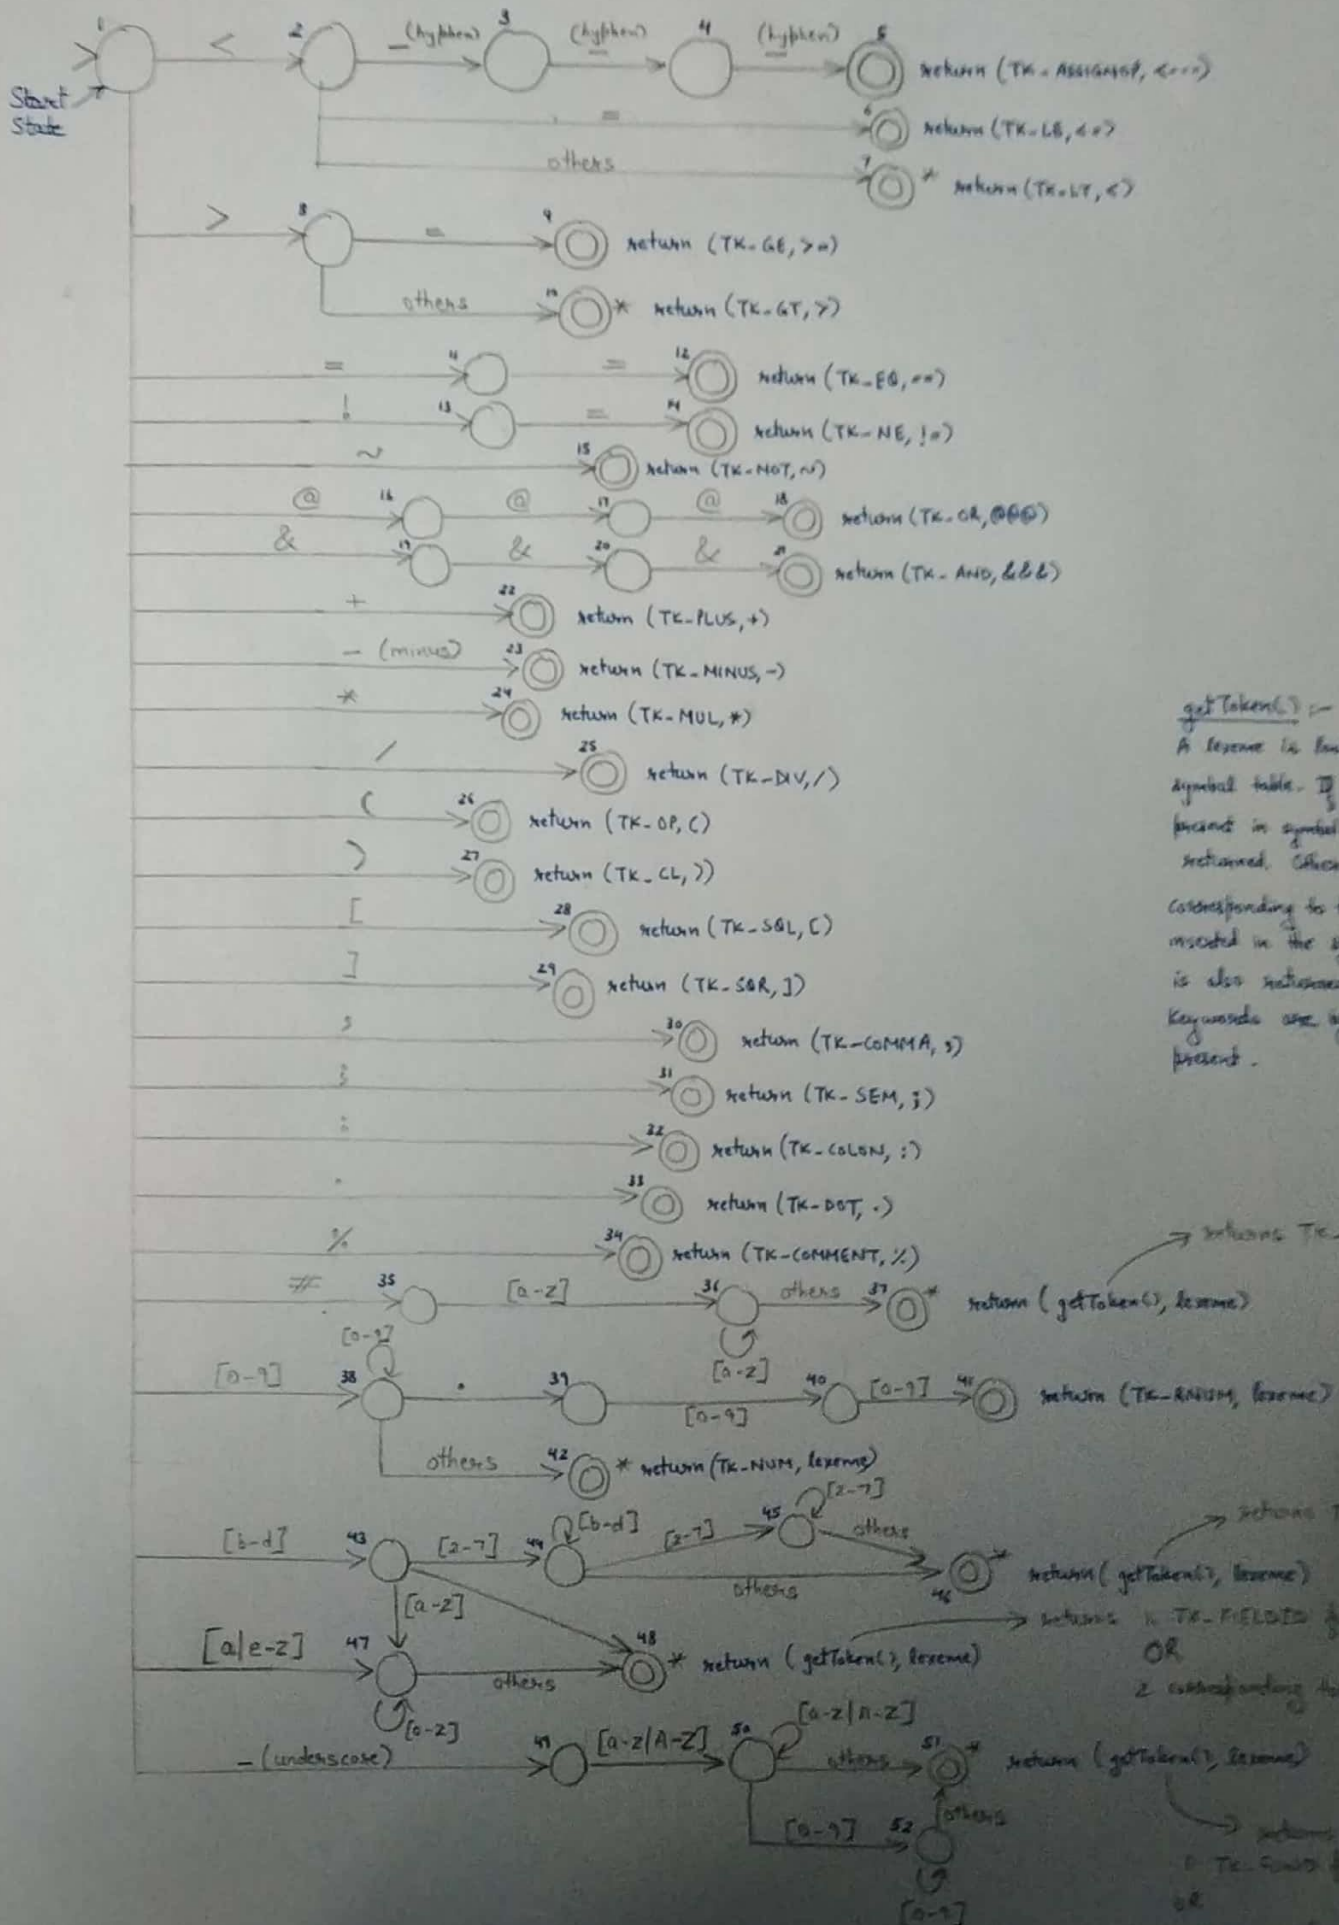 1 < 2 - (hyphen) 3 (hyphen) - 4 (hyphen) - 5 return (TK_ASSIGNOP, <---)
Start
State
= 6 return (TK_LE, <=)
others 7 * return (TK_LT, <)
> 8 = 9 return (TK_GE, >=)
others 10 * return (TK_GT, >)
= 11 = 12 return (TK_EQ, ==)
! 13 = 14 return (TK_NE, !=)
~ 15 return (TK_NOT, ~)
@ 16 @ 17 @ 18 return (TK_OR, @@@)
& 19 & 20 & 21 return (TK_AND, &&&)
+ 22 return (TK_PLUS, +)
- (minus) 23 return (TK_MINUS, -)
* 24 return (TK_MUL, *)
/ 25 return (TK_DIV, /)
( 26 return (TK_OP, ()
) 27 return (TK_CL, ))
[ 28 return (TK_SQL, [)
] 29 return (TK_SQR, ])
, 30 return (TK_COMMA, ,)
; 31 return (TK_SEM, ;)
: 32 return (TK_COLON, :)
. 33 return (TK_DOT, .)
% 34 return (TK_COMMENT, %)
# 35 [a-z] 36 others 37 * return (getToken(), lexeme)
returns TK_
[a-z]
[0-9]
[0-9] 38 . 39 [0-9] 40 [0-9] 41 return (TK_RNUM, lexeme)
others 42 * return (TK_NUM, lexeme)
[b-d] 43 [2-7] 44 [b-d] [2-7] 45 [2-7] others
others 46 * return (getToken(), lexeme)
returns
[a-z]
returns 1. TK_FIELDID
OR
2 corresponding
[a|e-z] 47 others 48 * return (getToken(), lexeme)
[a-z]
- (underscore) 49 [a-z|A-Z] 50 [a-z|A-Z] others 51 * return (getToken(), lexeme)
[0-9] 52 others
[0-9]
returns
1 TK_FUNID
OR
getToken() :-
A lexeme is
symbol table. If
present in symbol
returned.
corresponding to
inserted in the
is also returned
Keywords are
present.